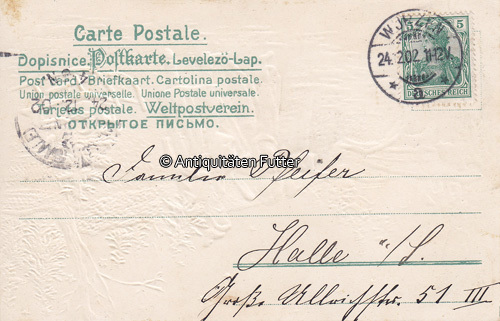 Carte Postale.
Dopisnice. Postkarte. Levelező-Lap.
Post Card. Briefkaart. Cartolina postale.
Union postale universelle. Unione Postale universale.
Tarjetas postales. Weltpostverein.
ОТКРЫТОЕ ПИСЬМО.
WURZEN
24.12.02. 11-12V.
* a.
5
DEUTSCHES REICH
© Antiquitäten Futter
Familie Pfeifer
Halle a/S.
Große Ullrichstr. 51 III